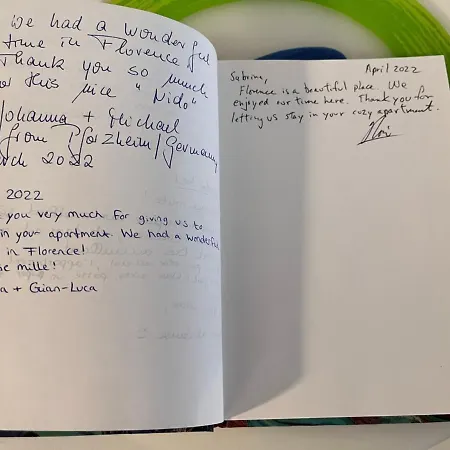 We had a wonderful
time in Florence
Thank you so much
for this nice "Nido"
Johanna + Michael
from Pforzheim/Germany
March 2022
2022
you very much for giving us to
in your apartment. We had a wonderful
in Florence!
mille!
+ Gian-Luca
April 2022
Sabrina,
Florence is a beautiful place. We
enjoyed our time here. Thank you for
letting us stay in your cozy apartment.